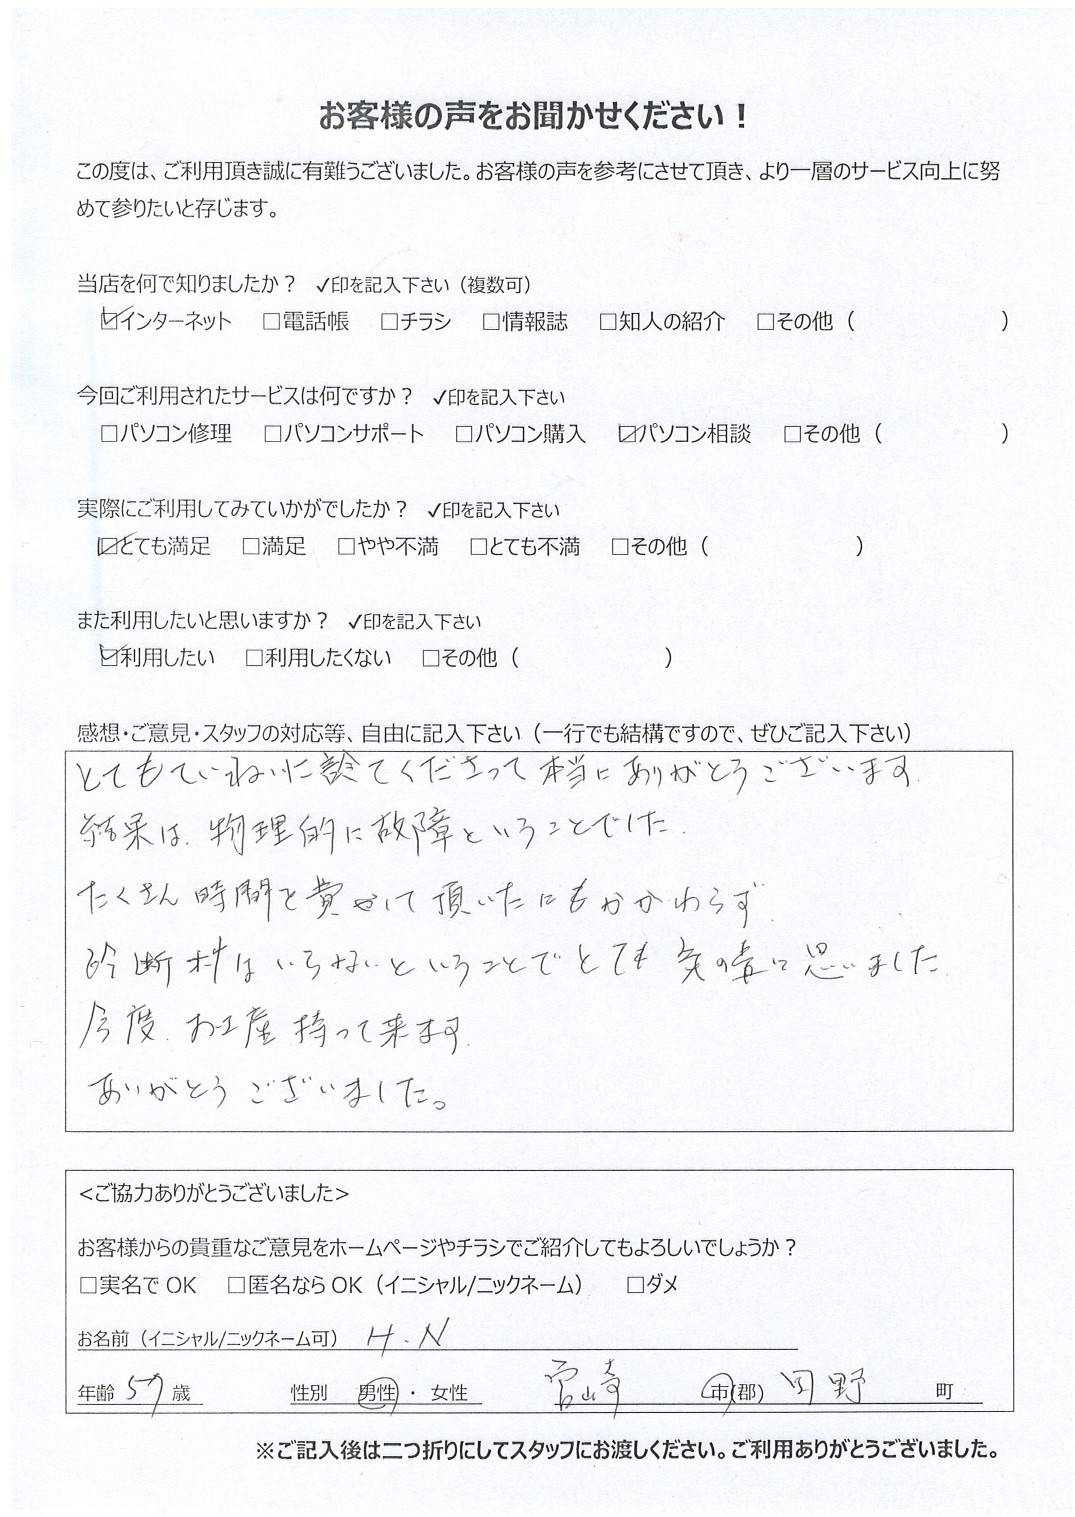 お客様の声をお聞かせください！
この度は、ご利用頂き誠に有難うございました。お客様の声を参考にさせて頂き、より一層のサービス向上に努
めて参りたいと存じます。
当店を何で知りましたか？ ✓印を記入下さい（複数可）
☑インターネット □電話帳 □チラシ □情報誌 □知人の紹介 □その他（ ）
今回ご利用されたサービスは何ですか？ ✓印を記入下さい
□パソコン修理 □パソコンサポート □パソコン購入 ☑パソコン相談 □その他（ ）
実際にご利用してみていかがでしたか？ ✓印を記入下さい
☑とても満足 □満足 □やや不満 □とても不満 □その他（ ）
また利用したいと思いますか？ ✓印を記入下さい
☑利用したい □利用したくない □その他（ ）
感想・ご意見・スタッフの対応等、自由に記入下さい（一行でも結構ですので、ぜひご記入下さい）
とてもていねいに診てくださって本当にありがとうございます.
結果は、物理的に故障ということでした.
たくさん時間を費やして頂いたにもかかわらず
診断料はいらないということでとても気の毒に思いました.
今度、お土産持って来ます.
ありがとうございました。
＜ご協力ありがとうございました＞
お客様からの貴重なご意見をホームページやチラシでご紹介してもよろしいでしょうか？
□実名でOK □匿名ならOK（イニシャル/ニックネーム） □ダメ
お名前（イニシャル/ニックネーム可） H.N
年齢 57 歳 性別 男性・女性 宮崎 市(郡) 田野 町
※ご記入後は二つ折りにしてスタッフにお渡しください。ご利用ありがとうございました。